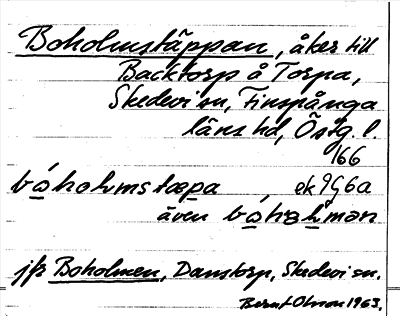 Boholmstäppan, åker till
Backtorp å Torpa,
Skedevi sn, Finspånga
läns hd, Östg. l.
166
bóholmstæpa , ek 9G6a
även bóhəlmən
jfr Boholmen, Danstorp, Skedevi sn.
Bernt Olsson 1963.